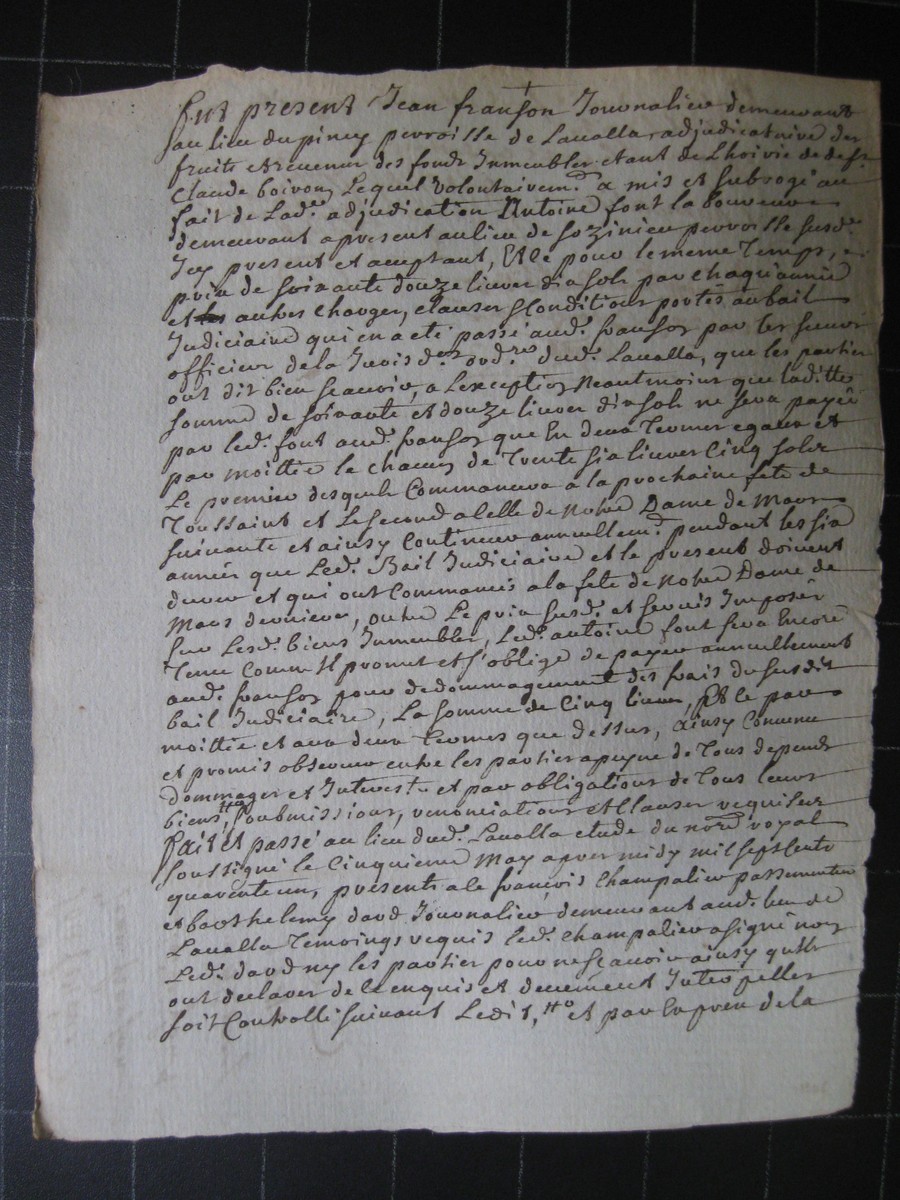 Fut present Jean franson Journalier demeurant
au lieu du piney perroisse de Lavalla, adjudicataire des
fruits et revenus des fonds Immeubles etant de Lhoirie de deft.
Claude boiron, Lequel volontairemt. a mis et subrogé au
fait de Lade. adjudication Antoine font laboureur
demeurant apresent au lieu de soizinieu perroisse susde.
Icy present et aceptant, Et ce pour le meme Temps,
prix de soixante douze livres dix sols par chaqu'année
et autres charges, clauses & Conditions portés au bail
Judiciaire qui en a eté passé aud. franson par les sieurs
officiers de la Jurisdon. ordre. dud. Lavalla, que les parties
ont dit bien sçavoir, a Lexception Neantmoins que laditte
somme de soixante et douze livres dix sols ne sera payée
par led. font aud. franson que En deux Termes egaux et
par moittié le chacun de Trente six livres Cinq sols
Le premier desquels Commancera a la prochaine fete de
Toussaint et Le second a Celle de Notre Dame de Mars
suivante et ainsy Continuer annuellemt. pendant les six
années que Led. Bail Judiciaire et le present doivent
durer et qui ont Commancés a la fete de Notre Dame de
Mars derniere, outre Le prix susd. et servis Imposés
sur Lesd. biens Immeubles, Led. antoine font sera Encore
Tenu Comm'Il promet et s'oblige de payer annuellement
aud. franson pour dedommagement des frais du susdit
bail Judiciaire, La somme de Cinq livres, Et ce par
moittié et aux deux Termes que dessus, Ainsy Convenu
et promis observer entre les parties a peyne de Tous depends
dommages et Interests et par obligations de Tous leurs
biens, soubmissions, renonciations et Clauses requises
Fait et passé au lieu dud. Lavalla etude du nore. royal
soussigné le Cinquieme May apres midy mil sept Cents
quarente un, présents a ce françois Champalier passementier
et barthelemy davd Journalier demeurant aud. lieu de
Lavalla Temoings requis led. Champalier a signé non
Led. davd ny les parties pour ne sçavoir ainsy qu'Ils
ont declarer de ce enquis et deuëment Interpeller
soit Controllé suivant Ledit, et par